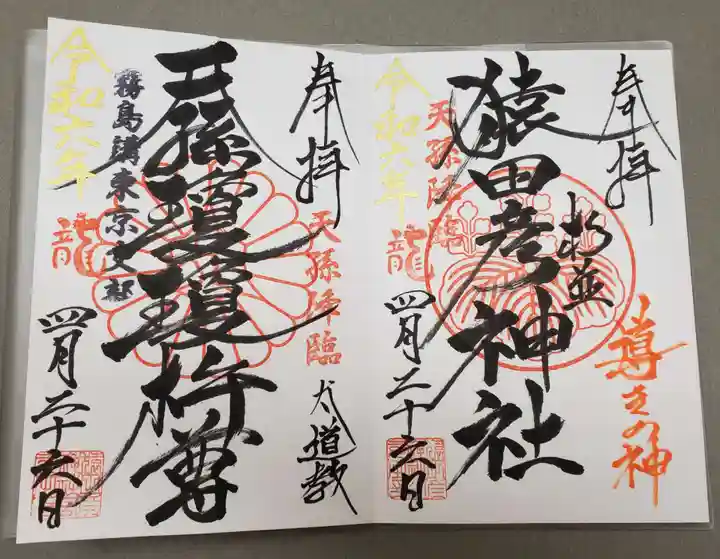 奉拝
天孫降臨
杉並
猿田彦神社
導きの神
令和六年
龍
四月二十六日
奉拝
天孫降臨
大道教
天孫瓊瓊杵尊
霧島講東京支部
令和六年
龍
四月二十六日